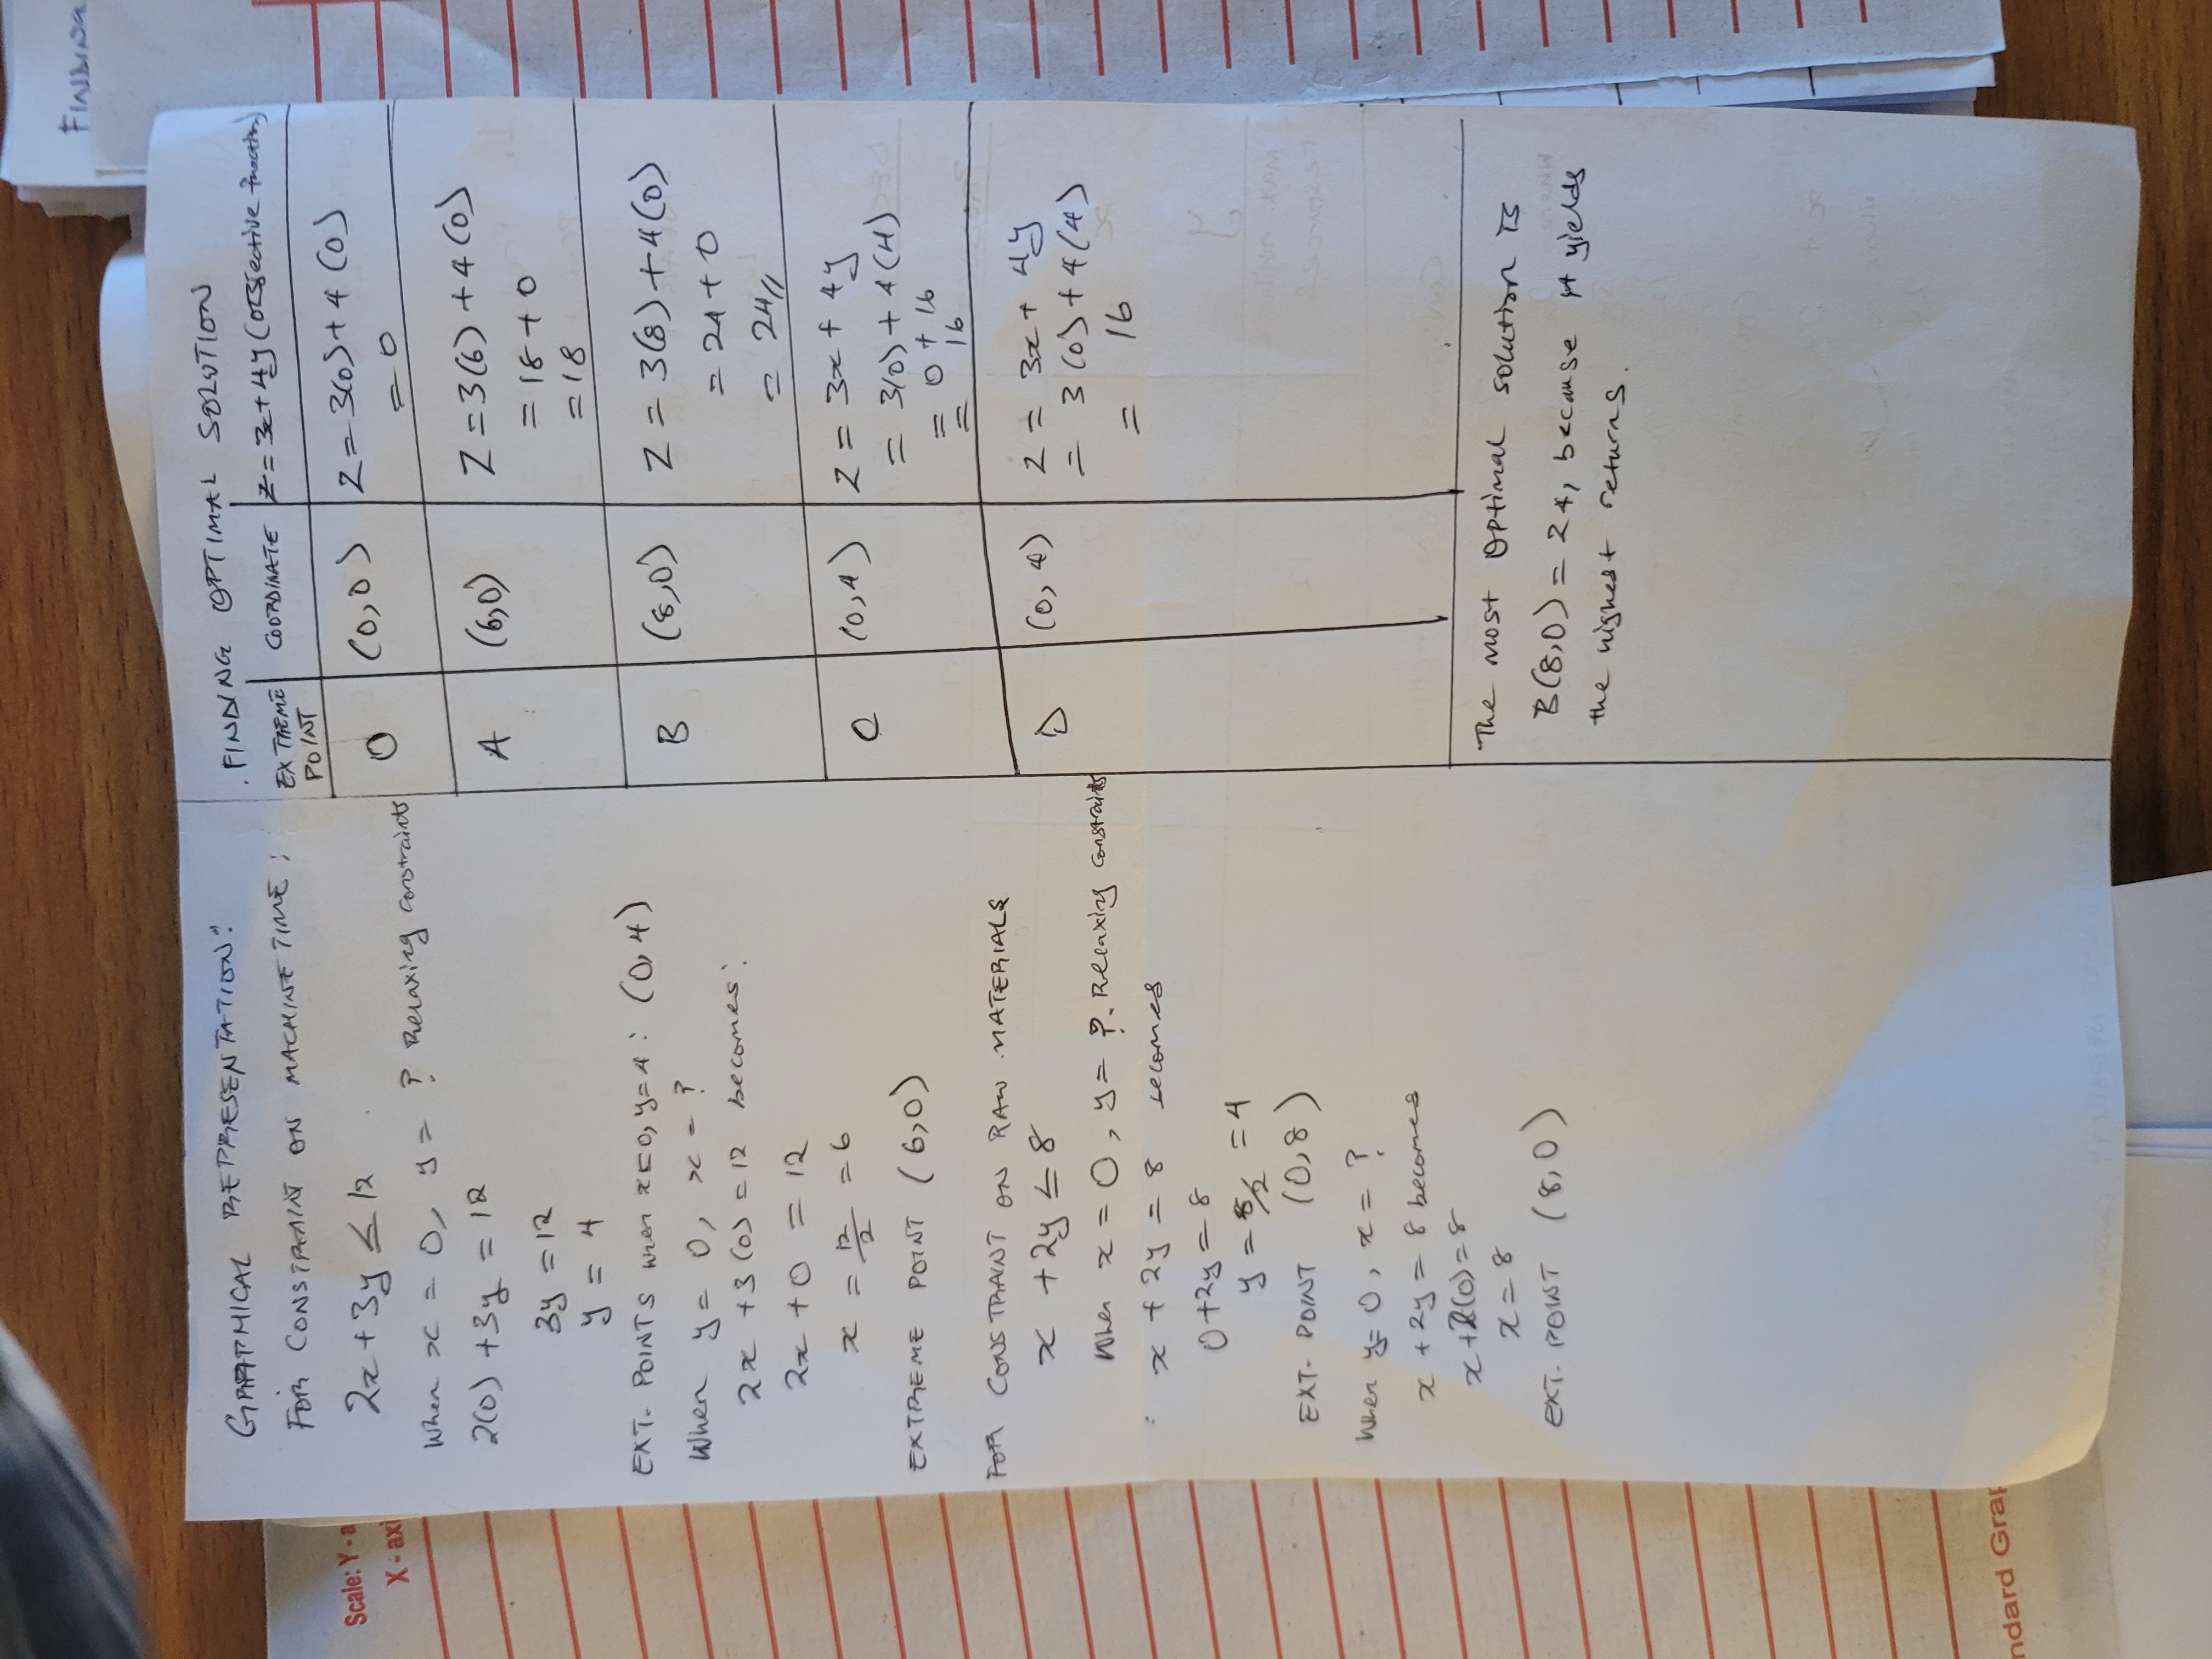 FINDING
Scale: Y - a
X - axi
GRAPHICAL REPRESENTATION:
FOR CONSTRAINT ON MACHINE TIME:
2x + 3y ≤ 12
When x = 0, y = ? Relaxing constraints
2(0) + 3y = 12
3y = 12
y = 4
EXT. POINTS when x=0, y=4: (0,4)
When y = 0, x = ?
2x + 3(0) = 12 becomes:
2x + 0 = 12
x = 12/2 = 6
EXTREME POINT (6,0)
FOR CONSTRAINT ON RAW MATERIALS
x + 2y ≤ 8
When x = 0, y = ?. Relaxing constraints
x + 2y = 8 becomes
0 + 2y = 8
y = 8/2 = 4
EXT. POINT (0,8)
When y = 0, x = ?
x + 2y = 8 becomes
x + 2(0) = 8
x = 8
EXT. POINT (8,0)
FINDING OPTIMAL SOLUTION
EXTREME POINT | COORDINATE | Z = 3x + 4y (Objective function)
O | (0,0) | Z = 3(0) + 4(0)
= 0
A | (6,0) | Z = 3(6) + 4(0)
= 18 + 0
= 18
B | (8,0) | Z = 3(8) + 4(0)
= 24 + 0
= 24//
C | (0,4) | Z = 3x + 4y
= 3(0) + 4(4)
= 0 + 16
= 16
D | (0,4) | Z = 3x + 4y
= 3(0) + 4(4)
= 16
The most optimal solution is
B(8,0) = 24, because it yields
the highest returns.
ndard Grap